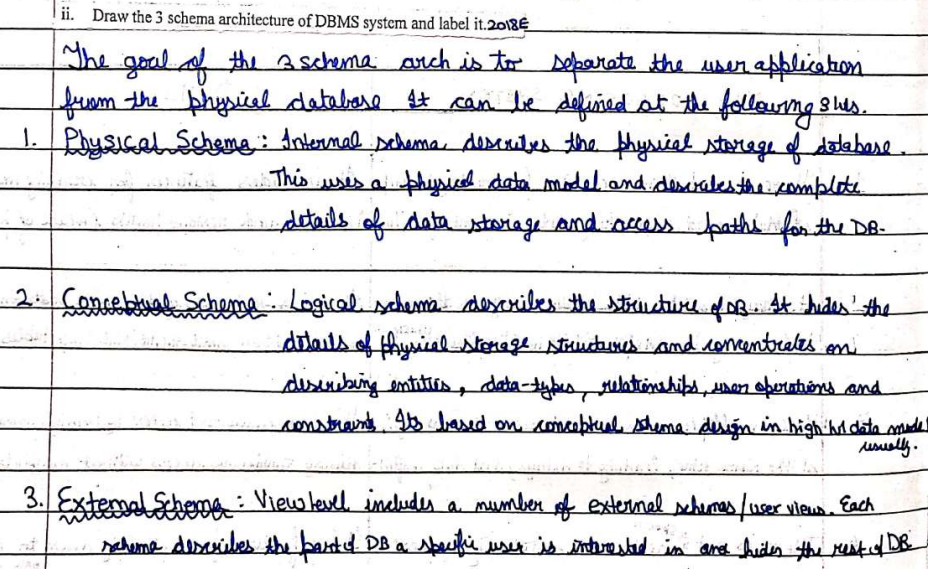 ii. Draw the 3 schema architecture of DBMS system and label it. 2018E
The goal of the 3 schema arch is to separate the user application
from the physical database. It can be defined at the following 3 lvls.
1. Physical Schema : Internal schema describes the physical storage of database.
This uses a physical data model and describes the complete
details of data storage and access paths for the DB.
2. Conceptual Schema : Logical schema describes the structure of DB. It hides the
details of physical storage structures and concentrates on
describing entities, data-types, relationships, user operations and
constraints. Its based on conceptual schema design in high lvl data model
usually.
3. External Schema : View level includes a number of external schemas/user views. Each
schema describes the part of DB a specific user is interested in and hides the rest of DB